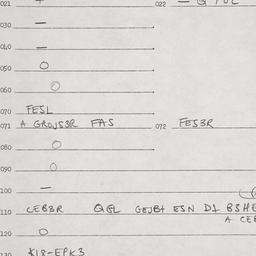 021
022 — Q
030 —
040 —
050 O
060 O
070 FESL
071 A GROJS3R FAS 072 FES3R
080 O
090 O
100 —
110 CEB3R QGL GEJB+ ESN D1 B3HE
A CEB
120 O
130 K18-EPK3